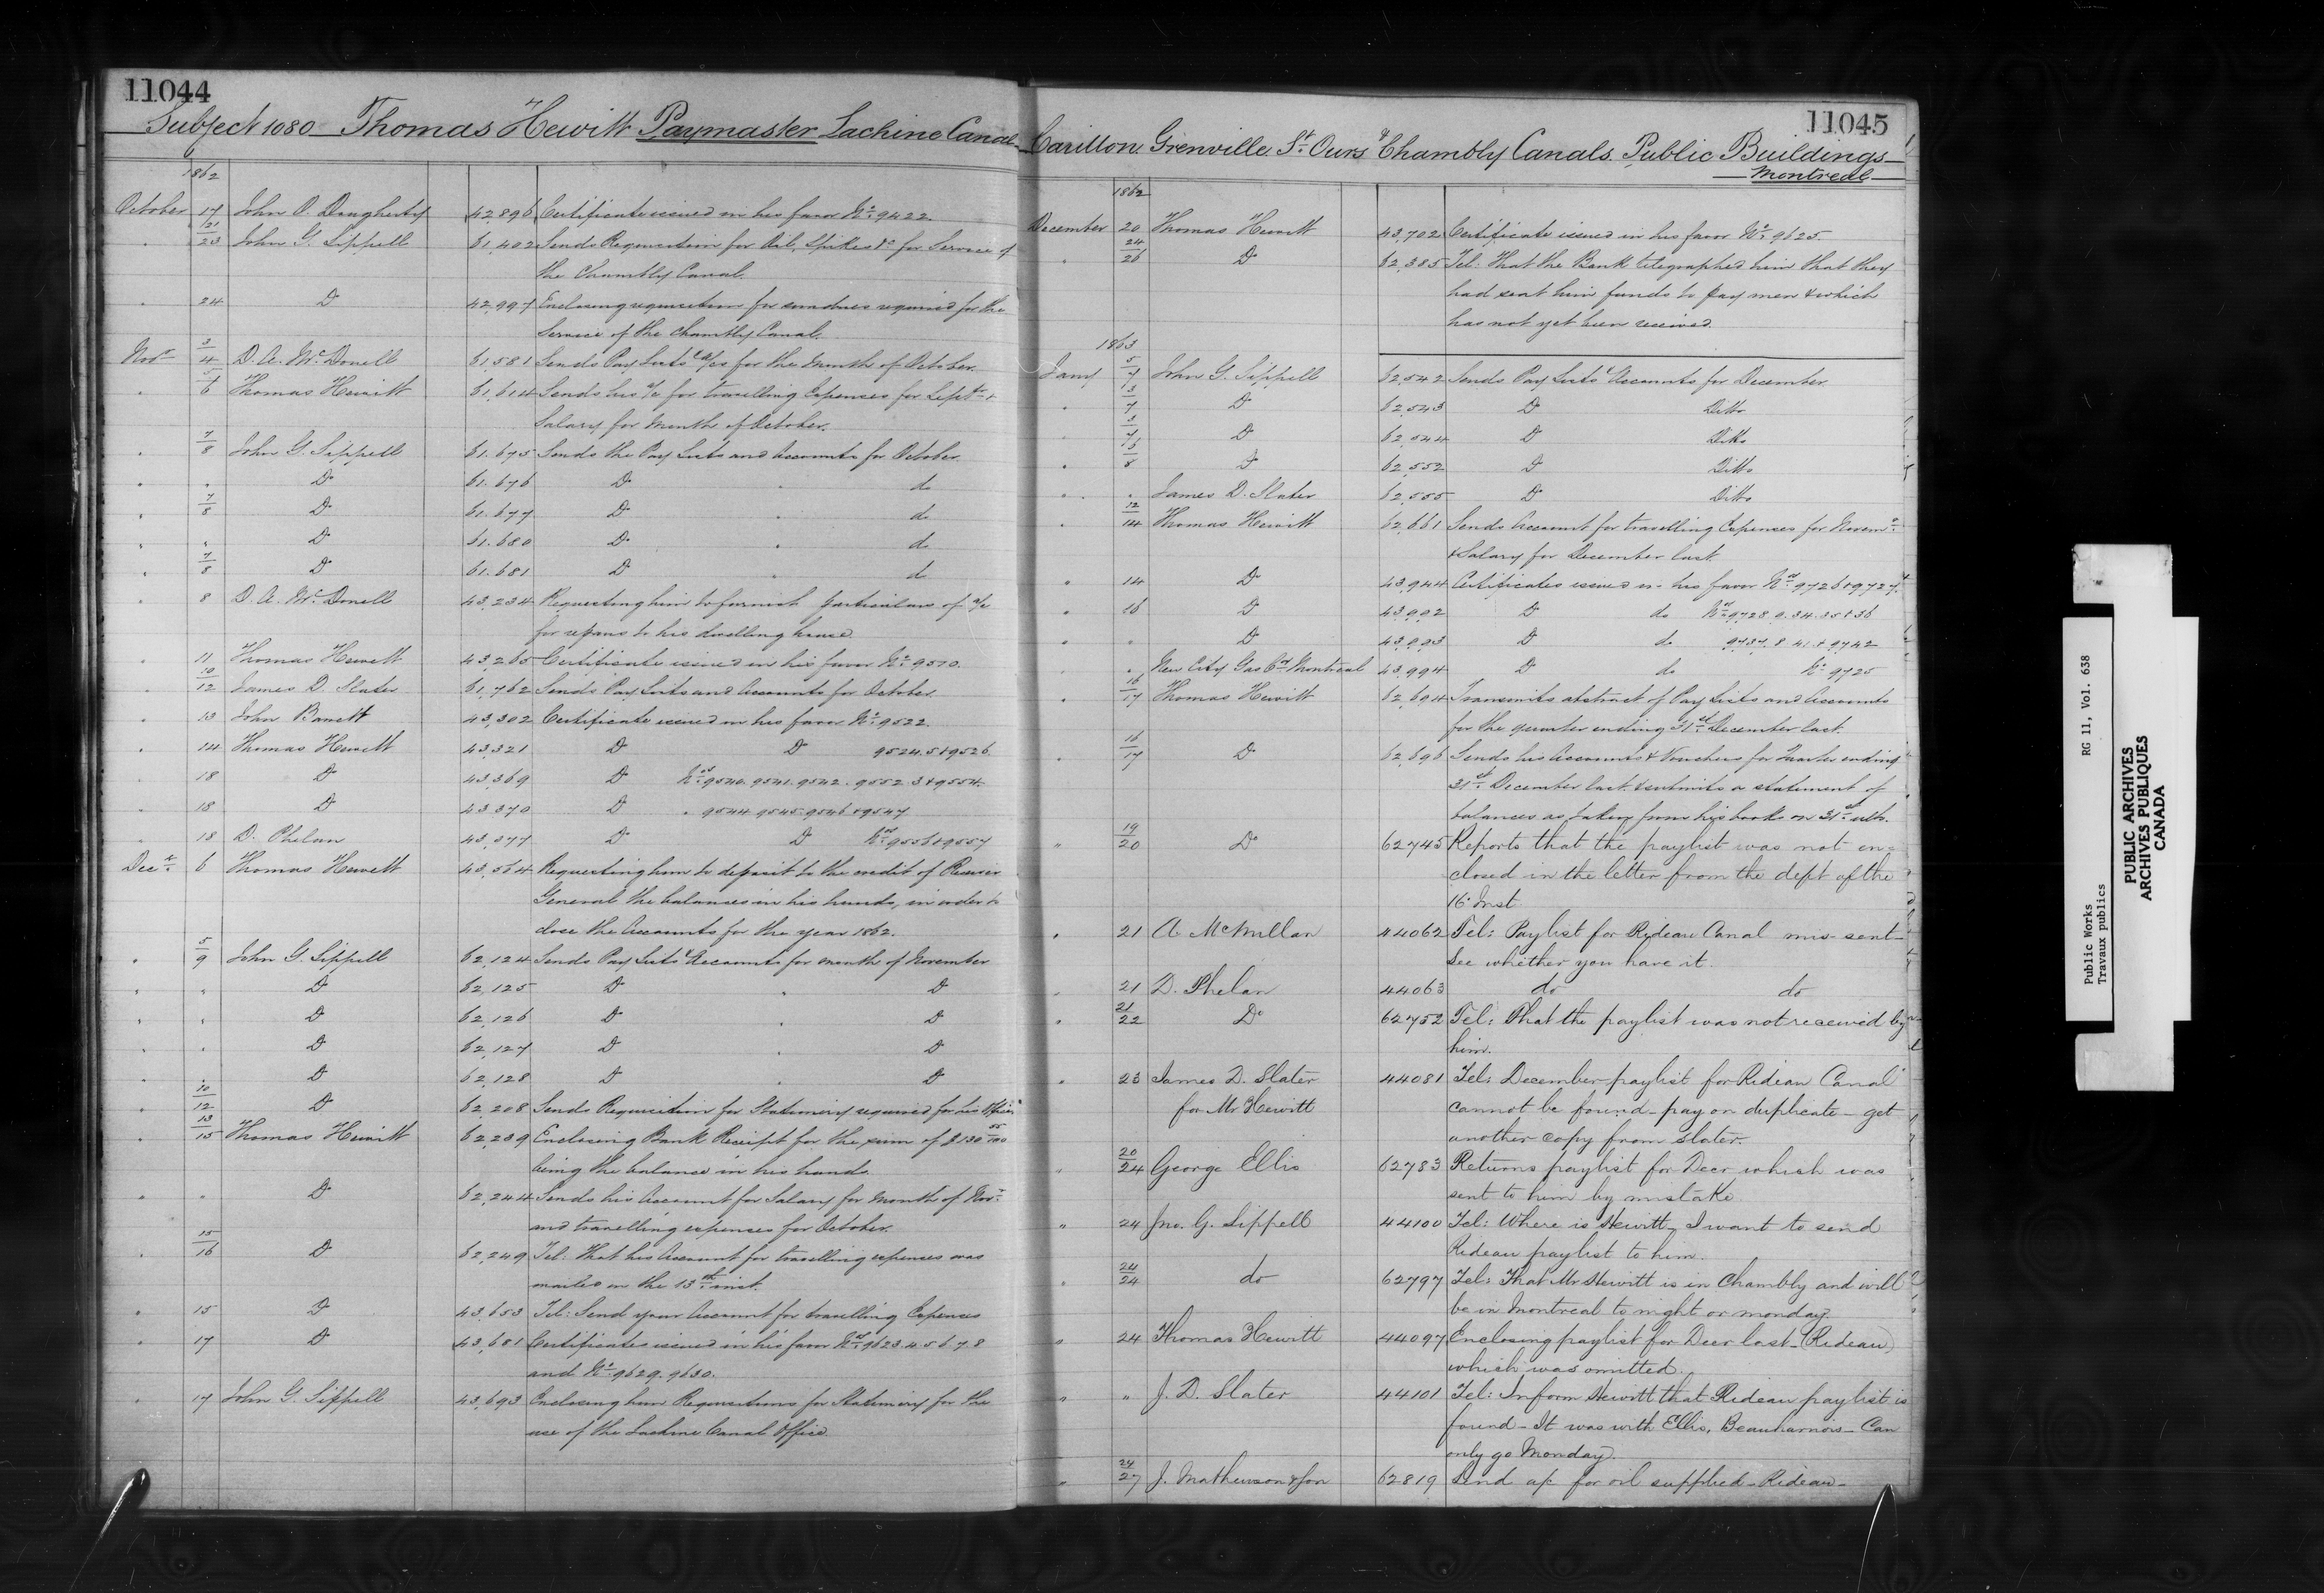 11044
Subject 1080 Thomas Hewitt Paymaster Lachine Canal
1862
October 17 John O. Daugherty 42,896 Certificate issued in his favor No. 9422.
21/23 John G. Sippell 61,402 Sends Requisition for Oil, Spikes &c for Service of
the Chambly Canal.
" 24 Do 42,997 Enclosing requisition for sundries required for the
Service of the Chambly Canal.
Novr 3/4 D. A. McDonell 61,581 Sends Pay Lists & a/cs for the Month of October.
" 5/6 Thomas Hewitt 61,614 Sends his a/c for travelling Expenses for Septr &
Salary for Month of October.
" 7/8 John G. Sippell 61.675 Sends the Pay Lists and Accounts for October.
" " Do 61.676 Do " do
" 7/8 Do 61.677 Do " do
" " Do 61.680 Do " do
" 7/8 Do 61.681 Do " do
" 8 D. A. McDonell 43,234 Requesting him to furnish particulars of a/c
for repairs to his dwelling house.
" 11 Thomas Hewitt 43,265 Certificate issued in his favor No. 9510.
" 10/12 James D. Slater 61,762 Sends Pay Lists and Accounts for October.
" 13 John Barrett 43,302 Certificate issued in his favor No. 9522.
" 14 Thomas Hewitt 43,321 Do Do 9524.5 & 9526
" 18 Do 43,369 Do Nos 9540. 9541. 9542. 9552. 3 & 9554.
" 18 Do 43,370 Do " 9544. 9545. 9546 & 9547
" 18 D. Phelan 43,377 Do Do Nos 9556 & 9557
Decr 6 Thomas Hewitt 43,564 Requesting him to deposit to the credit of Receiver
General the balances in his hands, in order to
close the Accounts for the year 1862.
" 5/9 John G. Sippell 62,124 Sends Pay Lists & Accounts for month of November
" " Do 62,125 Do " Do
" " Do 62,126 Do Do
" " Do 62,127 Do " Do
" " Do 62,128 Do " Do
" 10/12 Do 62,208 Sends Requisition for Stationery required for his Office
" 13/15 Thomas Hewitt 62,239 Enclosing Bank Receipt for the sum of $130 55/100
being the balance in his hands.
" " Do 62,244 Sends his Account for Salary for month of Novr
and travelling expenses for October.
" 15/16 Do 62,249 Tel: That his Account for travelling expenses was
mailed on the 13th inst.
" 15 Do 43,653 Tel: Send your Account for travelling Expenses
" 17 Do 43,681 Certificates issued in his favor Nos 9623.4.5.6.7.8
and No. 9629. 9630.
" 17 John G. Sippell 43,693 Enclosing him Requisitions for Stationery for the
use of the Lachine Canal Office.
11045
Carillon. Grenville. St Ours & Chambly Canals. Public Buildings
Montreal
1862
December 20 Thomas Hewitt 43,702 Certificate issued in his favor No. 9625.
" 24/26 Do 62,385 Tel: That the Bank telegraphed him that they
had sent him funds to pay men & which
has not yet been received.
1863
Jany 5/7 John G. Sippell 62,542 Sends Pay Lists & Accounts for December
" 3/7 Do 62,543 Do Ditto
" 3/7 Do 62,544 Do Ditto
" 6/8 Do 62,552 Do Ditto
" " James D. Slater 62,555 Do Ditto
" 12/14 Thomas Hewitt 62,661 Sends Account for travelling Expenses for Novemr
& Salary for December last.
" 14 Do 43,944 Certificates issued in his favor Nos 9726 & 9727.
" 16 Do 43,992 Do do Nos 9728.9.34.35 & 36
" " Do 43,993 Do do 9737.8.41 & 9742
" " New City Gas Co. Montreal 43,994 Do do No 9725
" 16/17 Thomas Hewitt 62,694 Transmits abstract of Pay Lists and Accounts
for the quarter ending 31st December last.
" 16/17 Do 62,696 Sends his Accounts & Vouchers for Quarter ending
31st December last & submits a statement of
balances as taken from his books on 31st ulto.
" 19/20 Do 62745 Reports that the paylist was not en=
closed in the letter from the dept of the
16 Inst
" 21 A. McMillan 44062 Tel: Paylist for Rideau Canal mis-sent—
See whether you have it.
" 21 D. Phelan 44063 do do
" 21/22 Do 62752 Tel: That the paylist was not received by
him.
" 23 James D. Slater 44081 Tel: December paylist for Rideau Canal
for Mr Hewitt cannot be found—pay on duplicate—get
another copy from Slater.
" 20/24 George Ellis 62783 Returns paylist for Decr which was
sent to him by mistake
" 24 Jno. G. Sippell 44100 Tel: Where is Hewitt, I want to send
Rideau paylist to him.
" 24/24 do 62797 Tel: That Mr Hewitt is in Chambly and will
be in Montreal to night or monday.
" 24 Thomas Hewitt 44097 Enclosing paylist for Decr last—(Rideau)
which was omitted.
" " J. D. Slater 44101 Tel: Inform Hewitt that Rideau paylist is
found—It was with Ellis, Beauharnois—Can
only go Monday.
" 24/27 J. Mathewson & Son 62819 Send a/c for oil supplied—Rideau—
Public Works RG 11, Vol. 638
Travaux publics
PUBLIC ARCHIVES
ARCHIVES PUBLIQUES
CANADA